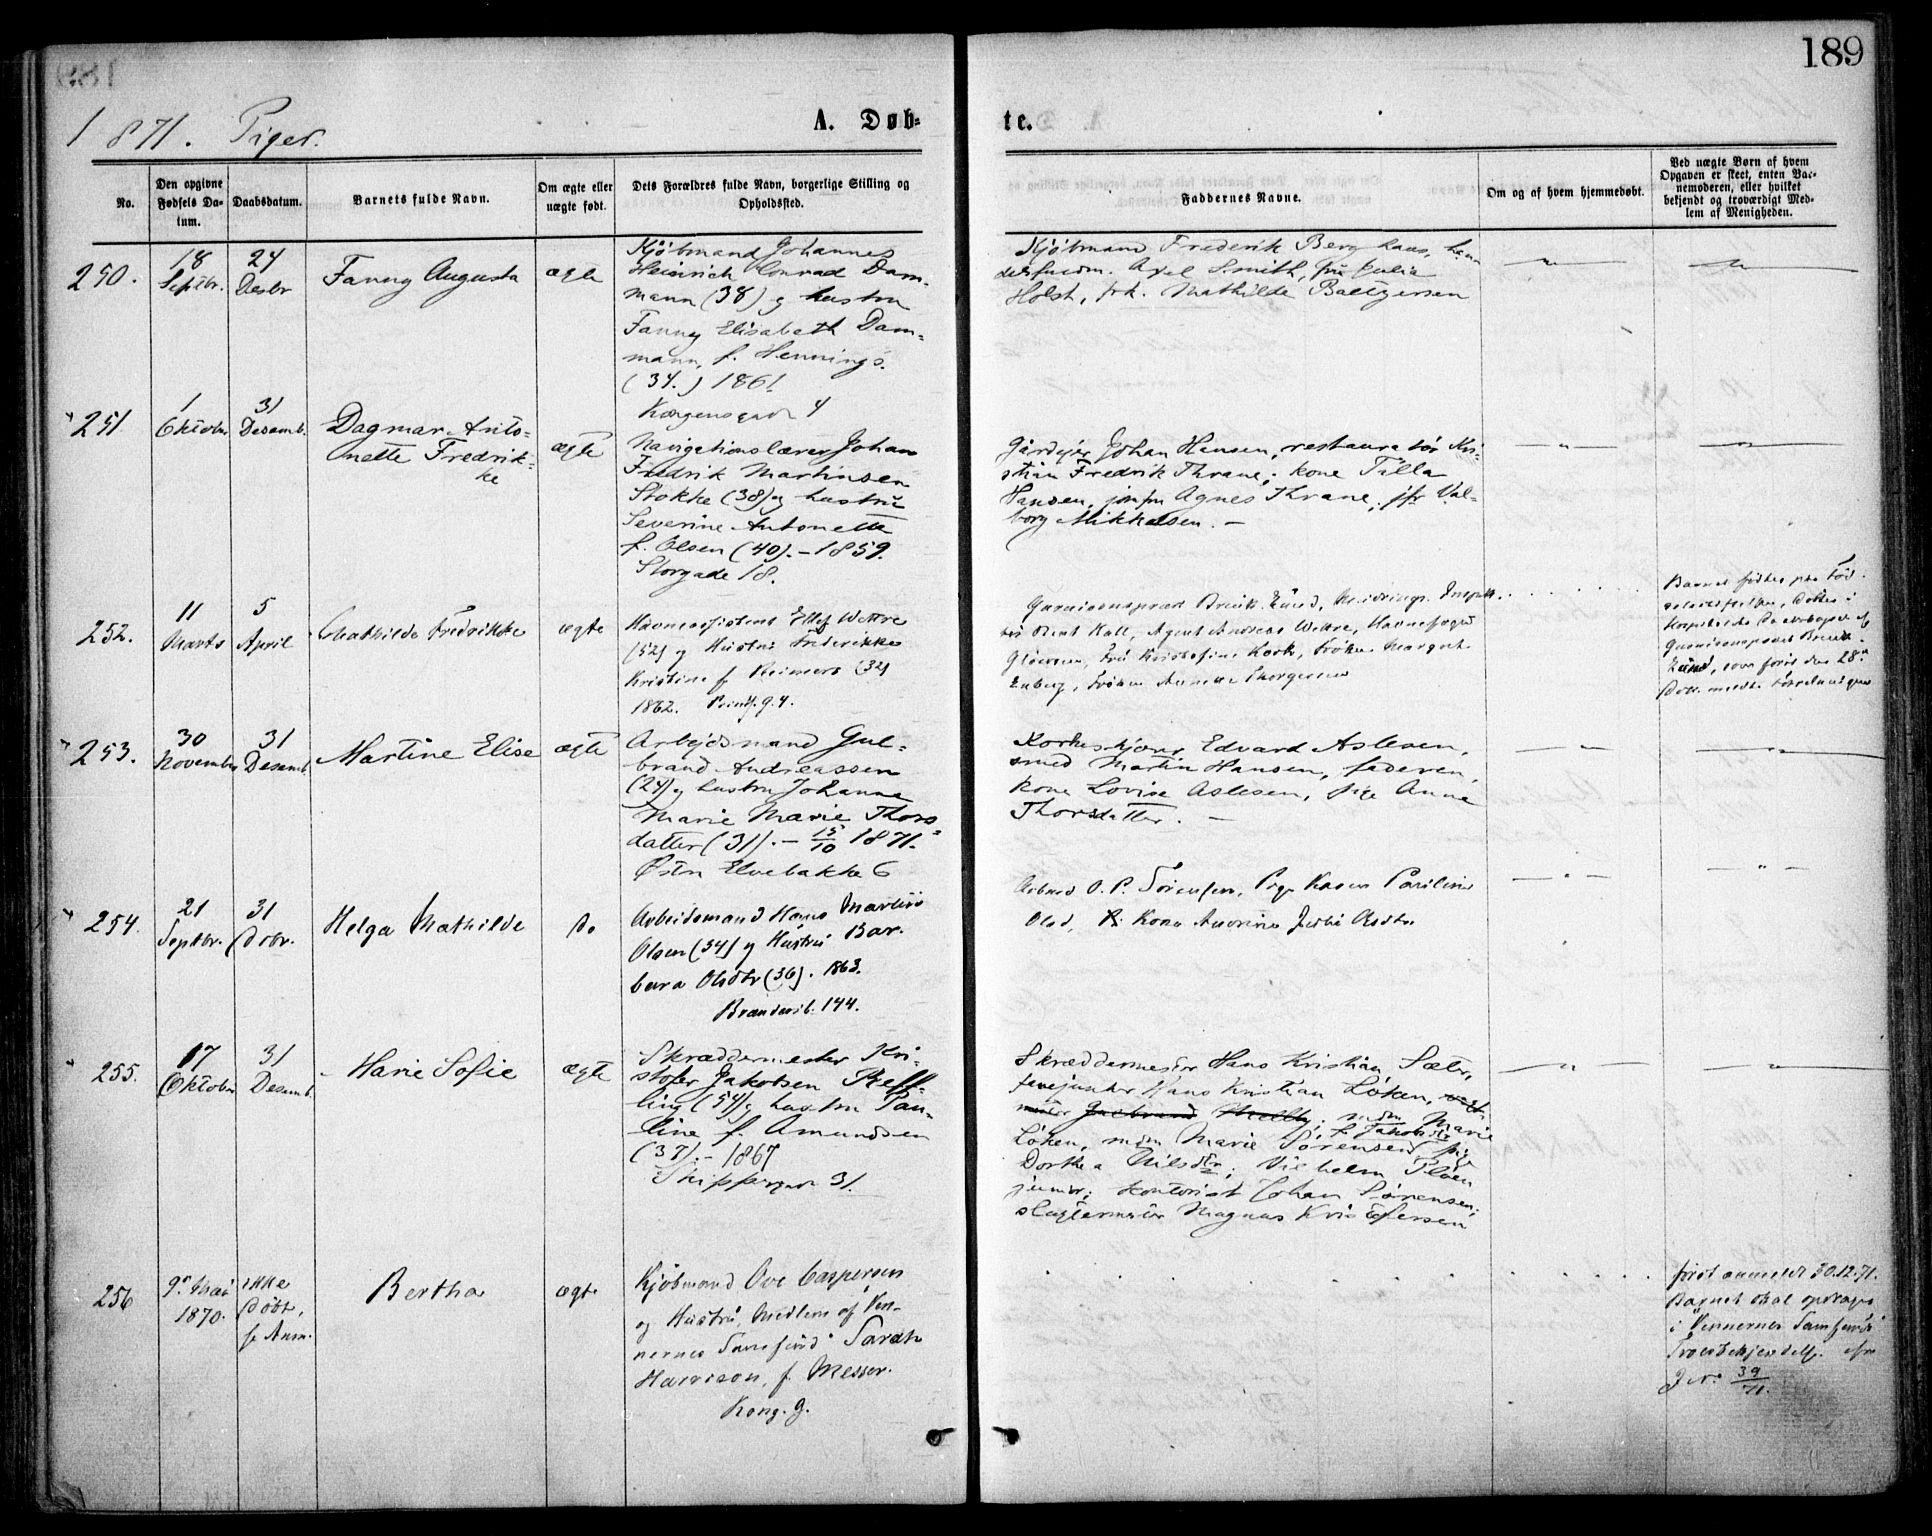 189
1871. Piger.
A. Døb-
te.
No.
Den opgivne Fødsels Da-
tum.
Daabsdatum.
Barnets fulde Navn.
Om ægte eller
uægte født.
Dets Forældres fulde Navn, borgerlige Stilling og
Opholdssted.
Faddernes Navne.
Om og af hvem hjemmedøbt.
Ved uægte Børn af hvem
Opgaven er skeet, enten Bar-
nemoderen, eller hvilket
bekjendt og troværdigt Med-
lem af Menigheden.
250.
18
Septbr.
24
Desbr
Fanny Augusta
ægte
Kjøbmand Johannes
Heinrich Conrad Dam-
mann (38) og hustru
Fanny Elisabeth Dam-
mann, f. Hennings.
(34.) 1861
Kongensgade 4
Kjøbmand Frederik Berg
Axel Smith, fru Julie
Holst, frk. Mathilde Baetzersen
251
1
Oktober
31
Desemb.
Dagmar Anto-
nette Fredrik-
ke
ægte
Navigationslærer Johan
Fredrik Martinsen
Stokke (38) og hustru
Severine Antonette
f. Olsen (40). - 1859.
Storgade 18.
Gårdejer Johan Hansen, restauratør Kri-
stian Fredrik Thrane; kone Tilla
Hansen, jomfru Agnes Thrane, jfr Val-
borg Mikkelsen. -
252.
11
Marts
5
April
Mathilde Fredrikke
ægte
Havneassistent Ellef Wettre
(52) og Hustru Frederikke
Kristine f Reimers (32)
1862. Prinds. g. 4.
Garnisonsprest Brink
Bent Kall, Agent Andreas Wettre, Havnefoged
Frøken Margret
Frøken
Barnet fødtes paa Fød-
selsstiftelsen, døbtes i
af
Garnisonsprest Brink
som først den 28de
253.
30
November
31
Desemb.
Martine Elise
ægte
Arbejdsmand Gul-
brand Andreassen
(24) og hustru Johanne
Marie Marie Thors-
datter (31). - 15/10 1871.
Østre Elvebakke 6
Edvard Aslesen,
smed Martin Hansen, faderen,
kone Lovise Aslesen, pige Anne
Thorsdatter. -
254.
21
Septbr.
31
Dcbr.
Helga Mathilde
do
Arbeidsmand Hans Martin
Olsen (34) og Hustru Bar-
bara Olsdtr (36). 1863.
Brændersb. 144.
Arbmd O. P. Sørensen, Pige Karen Pauline
Olsd, Kone
255.
17
Oktober
31
Desemb.
Marie Sofie
ægte
Skræddermester Kri-
stofer Jakobsen Reff-
ling (54) og hustru Pau-
line f. Amundsen
(37). - 1867
Skippergade 31.
Skræddermester Hans Kristian Sæter,
Hans Kristian Løken,
mdm Marie
Løken, mdm Marie Sørensen f. Jakobsen, pige
Dorthea Nilsdtr; Vilhelm Plöen
junior; kontorist Johan Sørensen,
slagtermester Magnus Kristofersen
256
9de Mai
1870.
ikke
døbt,
se Anm.
Bertha
ægte
Kjøbmand Ove Caspersen
og Hustru, Medlem af Ven-
nernes Samfund Sarah
Harrison, f. Messer.
Kong. g.
først anmeldt 30.12.71.
Barnet skal opdrages
i Vennernes Samfunds
Troesbekjendelse. cfr
J No 39/71.